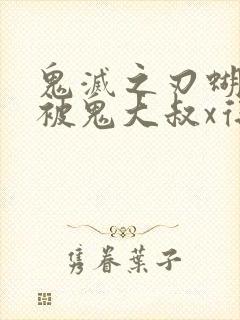 鬼滅之刃蝴
被鬼大叔x
隽眷葉子